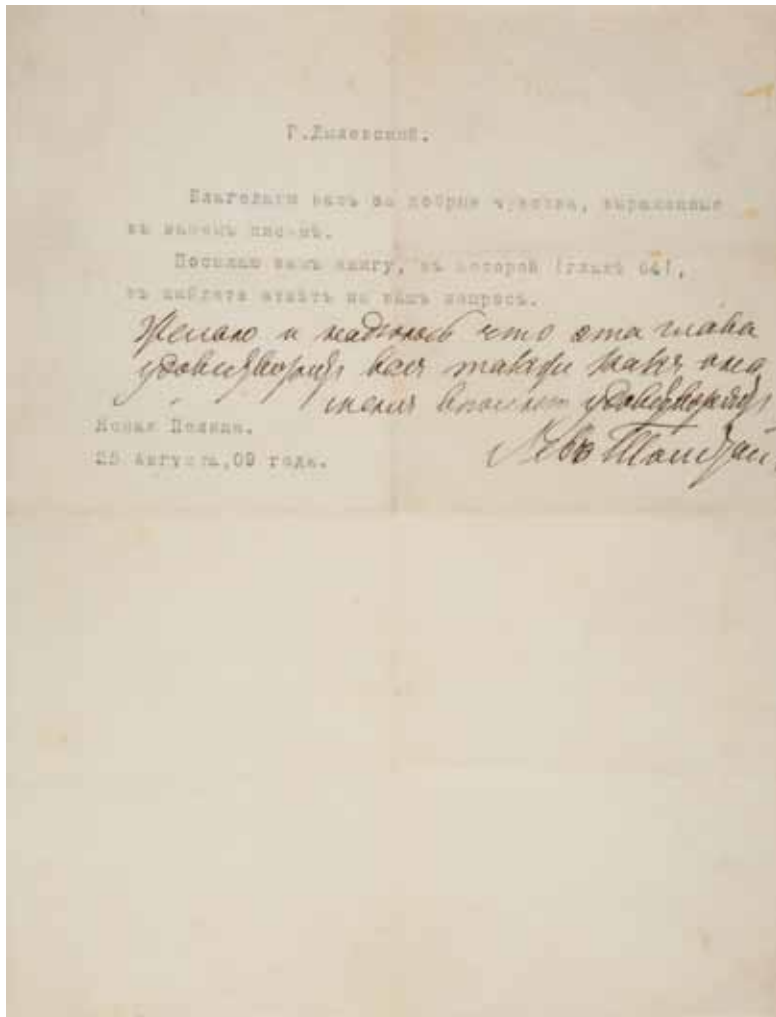 Г.Дилевский.
Благодарю васъ за добрыя чувства, выраженныя
въ вашемъ письмѣ.
Посылаю вамъ книгу, въ которой (глава 64),
вы найдете отвѣтъ на вашъ вопросъ.
Желаю и надѣюсь что эта глава
удовлетворитъ васъ такъже какъ она
меня вполнѣ удовлетворяетъ
Левъ Толстой
Ясная Поляна.
25 Августа, 09 года.